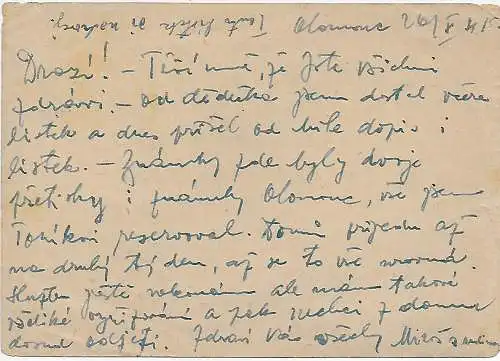 Olomouc 26/V 45.
Tento lístek si nechosi.
Drazí! – Těší mně, že jste všichni
zdrávi. – Od dědečka jsem dostal včera
lístek a dnes přišel od bile dopis i
lístek. – Známky zde byly dvoje
přetisky i známky Olomouc, vše jsem
Toníkovi reservoval. Domů přijedu až
na druhý týden, až se to vše srovná.
ještě nekonám ale mám takové
všeliké vyřizování a pak nelze z domu
dovnd odjeti. Zdraví Vás všechny Miloš